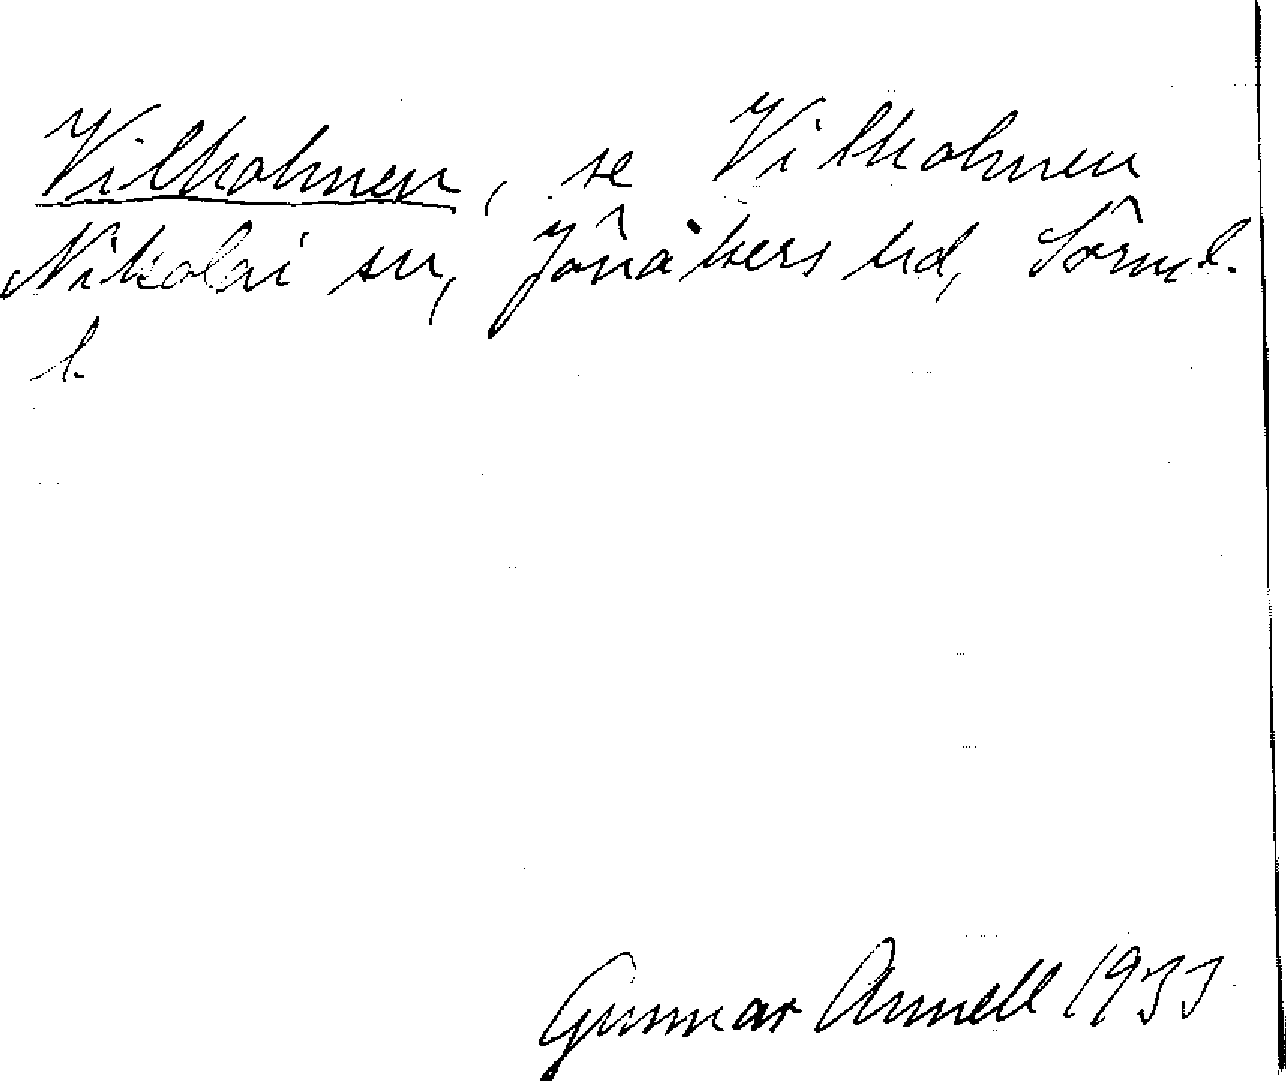 Vilholmen, se Vilholmen
Nikolai sn, Jönåkers hd, Sörml.
l.
Gunnar Annell 1933